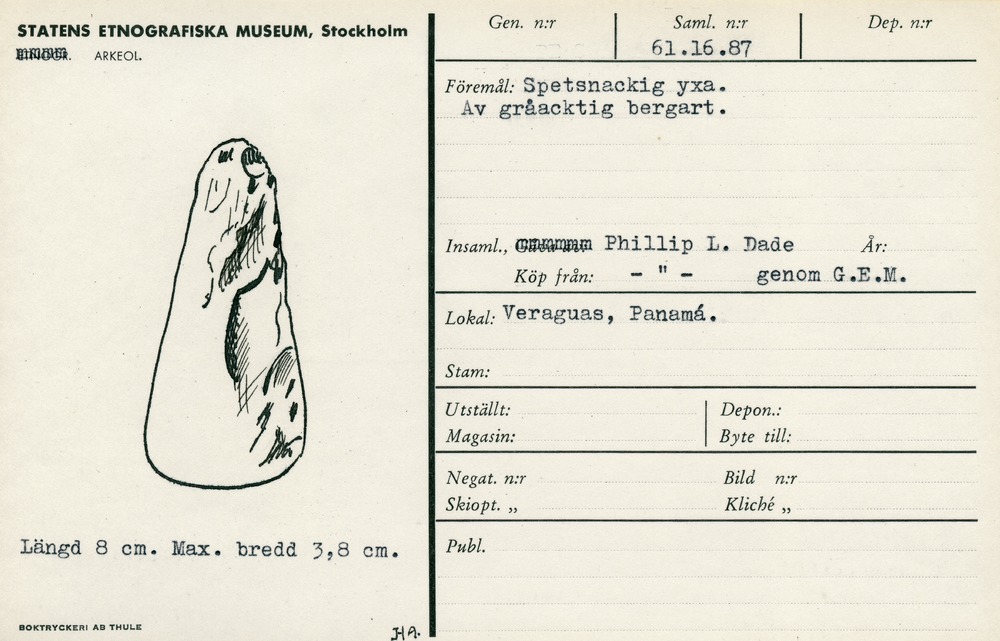 STATENS ETNOGRAFISKA MUSEUM, Stockholm
ARKEOL.
Längd 8 cm. Max. bredd 3,8 cm.
BOKTRYCKERI AB THULE
HA.
Gen. n:r Saml. n:r Dep. n:r
61.16.87
Föremål: Spetsnackig yxa.
Av gråacktig bergart.
Insaml., Phillip L. Dade År:
Köp från: - " - genom G.E.M.
Lokal: Veraguas, Panamá.
Stam:
Utställt: Depon.:
Magasin: Byte till:
Negat. n:r Bild n:r
Skiopt. „ Kliché „
Publ.